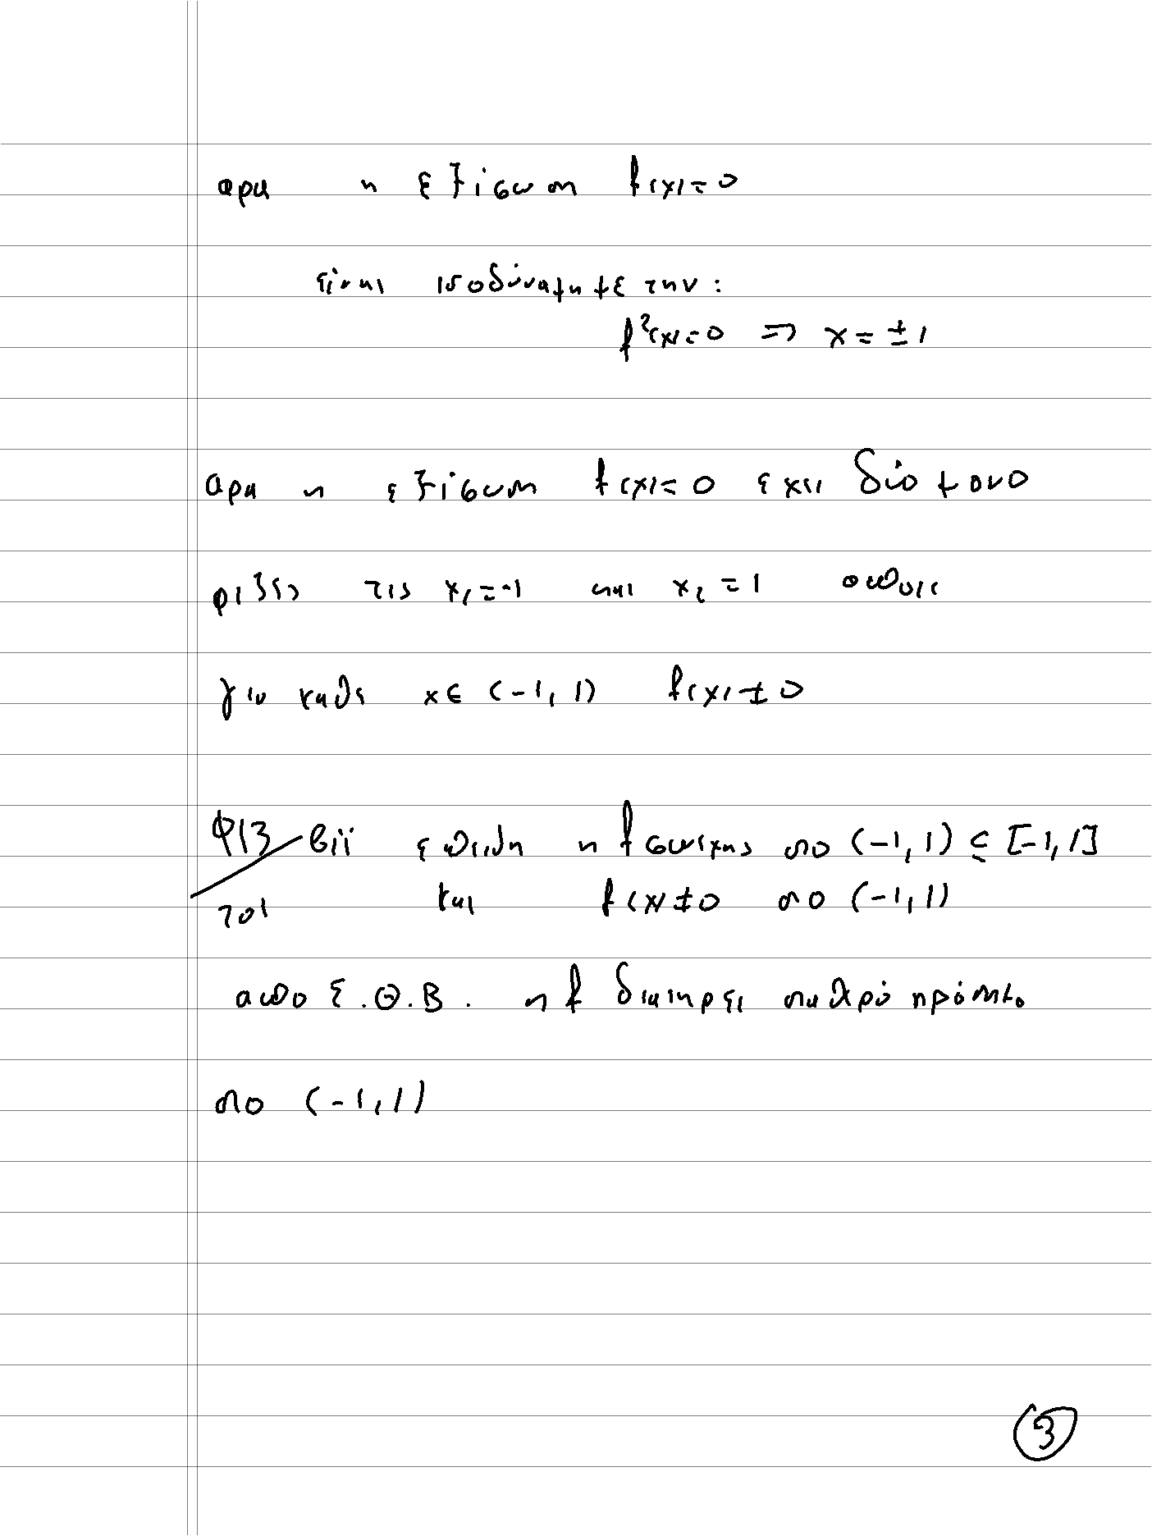 αρα η εξίσωση f(x)=0
είναι ισοδύναμη με την:
f²(x)=0 => x = ±1
αρα η εξίσωση f(x)=0 εχει δύο μονο
ριζες τις x₁=-1 και x₂=1 οπότε
για καθε x∈(-1,1) f(x)≠0
Φ13 βii επειδη η f συνεχης στο (-1,1) ⊆ [-1,1]
701 και f(x)≠0 στο (-1,1)
απο Σ.Θ.B. η f διατηρει σταθερό πρόσημο
στο (-1,1)
3